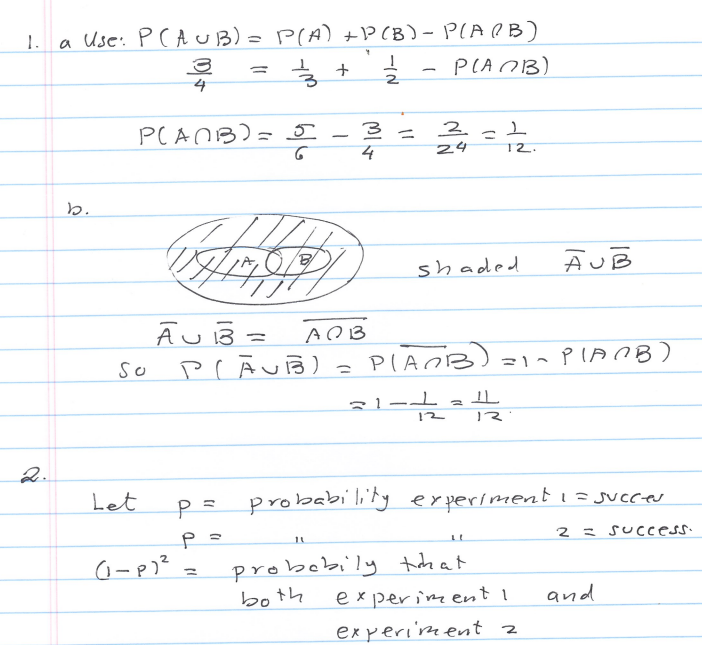 1. a Use: P(A∪B) = P(A) + P(B) - P(A∩B)
3/4 = 1/3 + 1/2 - P(A∩B)
P(A∩B) = 5/6 - 3/4 = 2/24 = 1/12.
b.
A B shaded Ā∪B̅
Ā∪B̅ = \overline{A∩B}
So P(Ā∪B̅) = P(\overline{A∩B}) = 1 - P(A∩B)
= 1 - 1/12 = 11/12.
2.
Let p = probability experiment 1 = succes
p = " " 2 = success.
(1-p)² = probabily that
both experiment 1 and
experiment 2